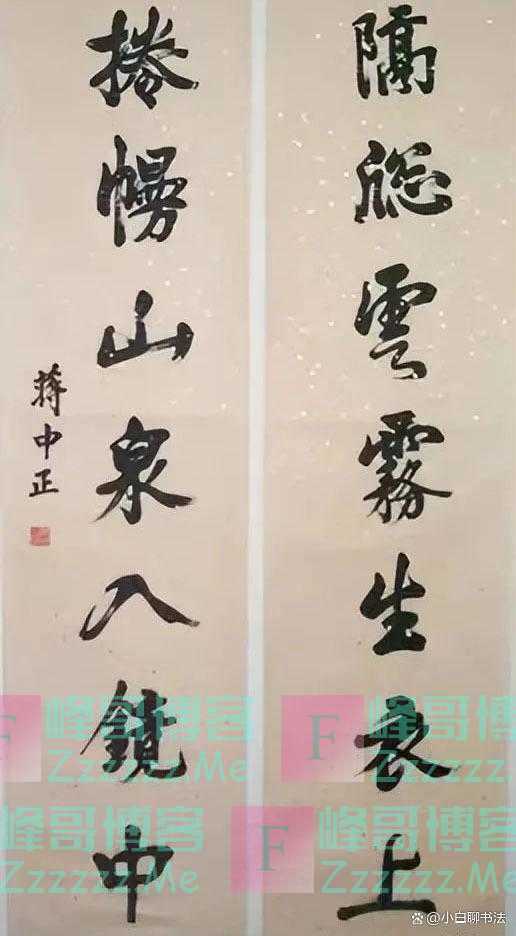 隔窗雲霧生衣上
捲幔山泉入鏡中
蔣中正
F 峰哥博客
Zzzzzz.Me
F 峰哥博客
Zzzzzz.Me
F 峰哥博客
Zzzzzz.Me
F 峰哥博客
Zzzzzz.Me
小白聊书法